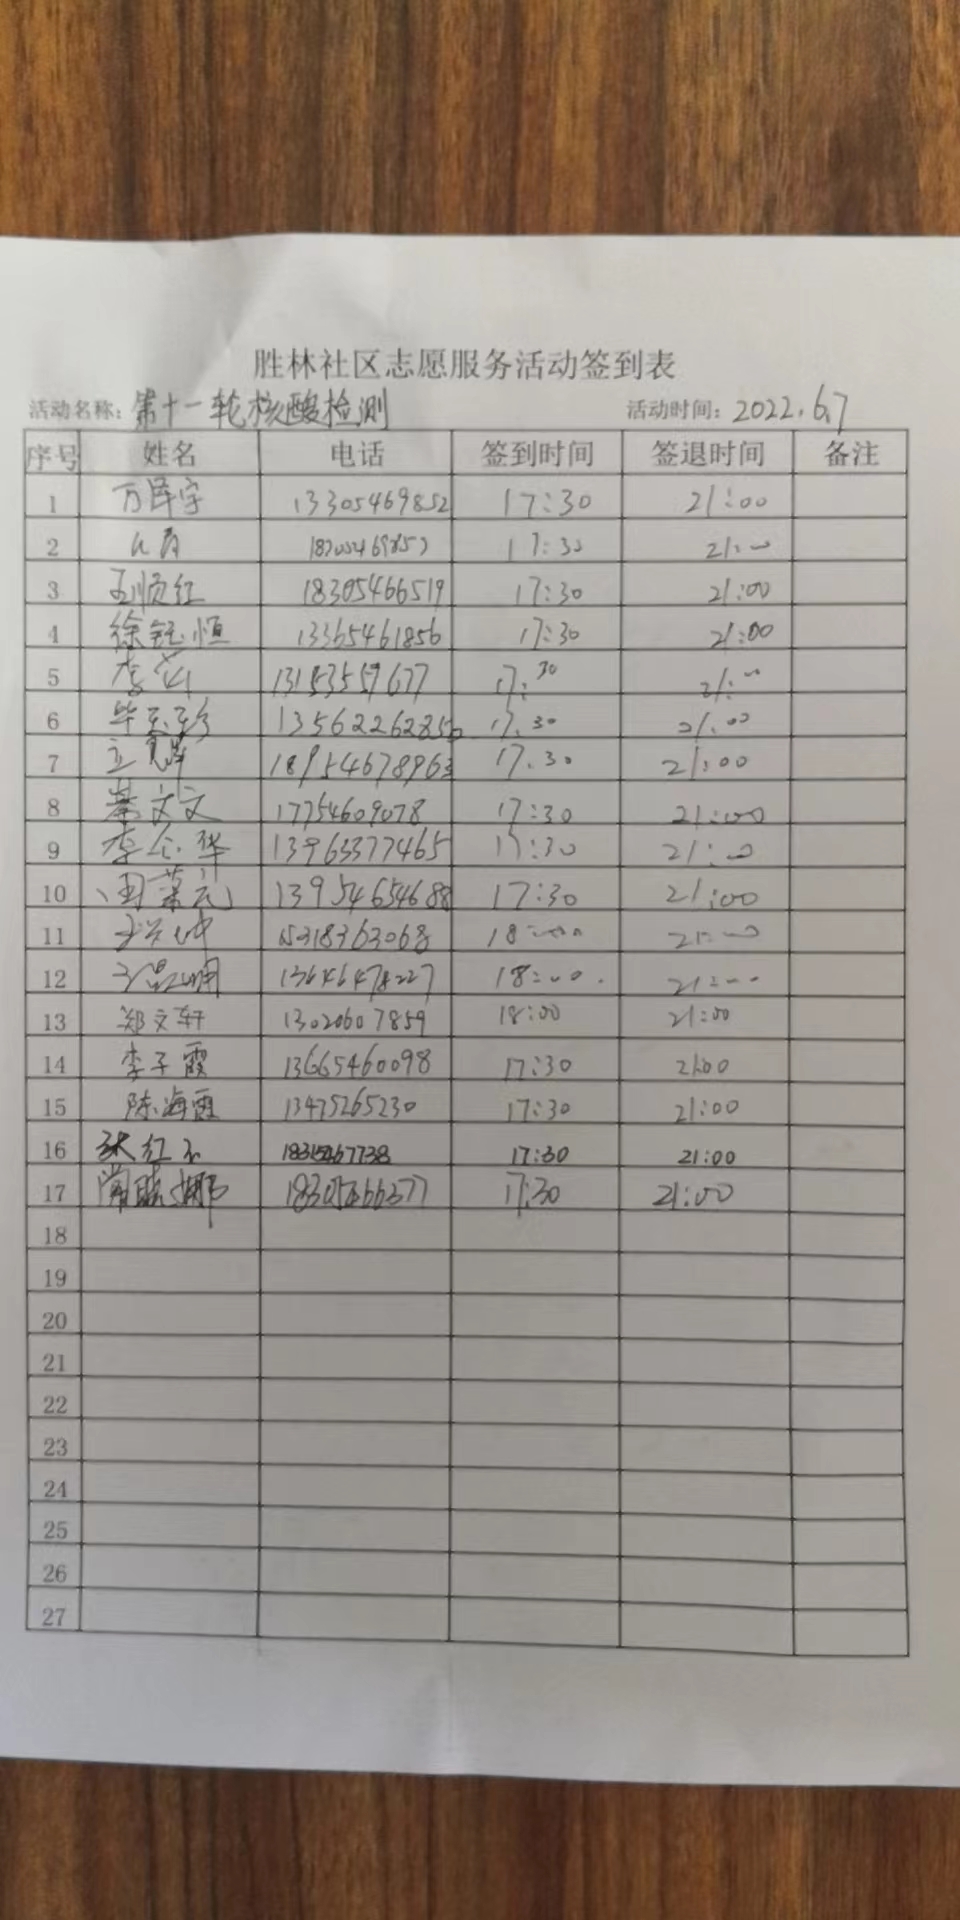 胜林社区志愿服务活动签到表
活动名称: 第十一轮核酸检测 活动时间: 2022.6.7
序号 姓名 电话 签到时间 签退时间 备注
1 万泽宇 13305469852 17:30 21:00
2 17:30 21:00
3 王顺红 18305466519 17:30 21:00
4 徐钰恒 13365461856 17:30 21:00
5 13153559677 17:30 21:00
6 17:30 21:00
7 17:30 21:00
8 綦文文 17754609078 17:30 21:00
9 13963377465 17:30 21:00
10 13954654688 17:30 21:00
11 15318363068 18:00 21:00
12 13646478227 18:00 21:00
13 郑文轩 13020607859 18:00 21:00
14 李子霞 13665460098 17:30 21:00
15 陈海霞 13475265230 17:30 21:00
16 17:30 21:00
17 17:30 21:00
18
19
20
21
22
23
24
25
26
27